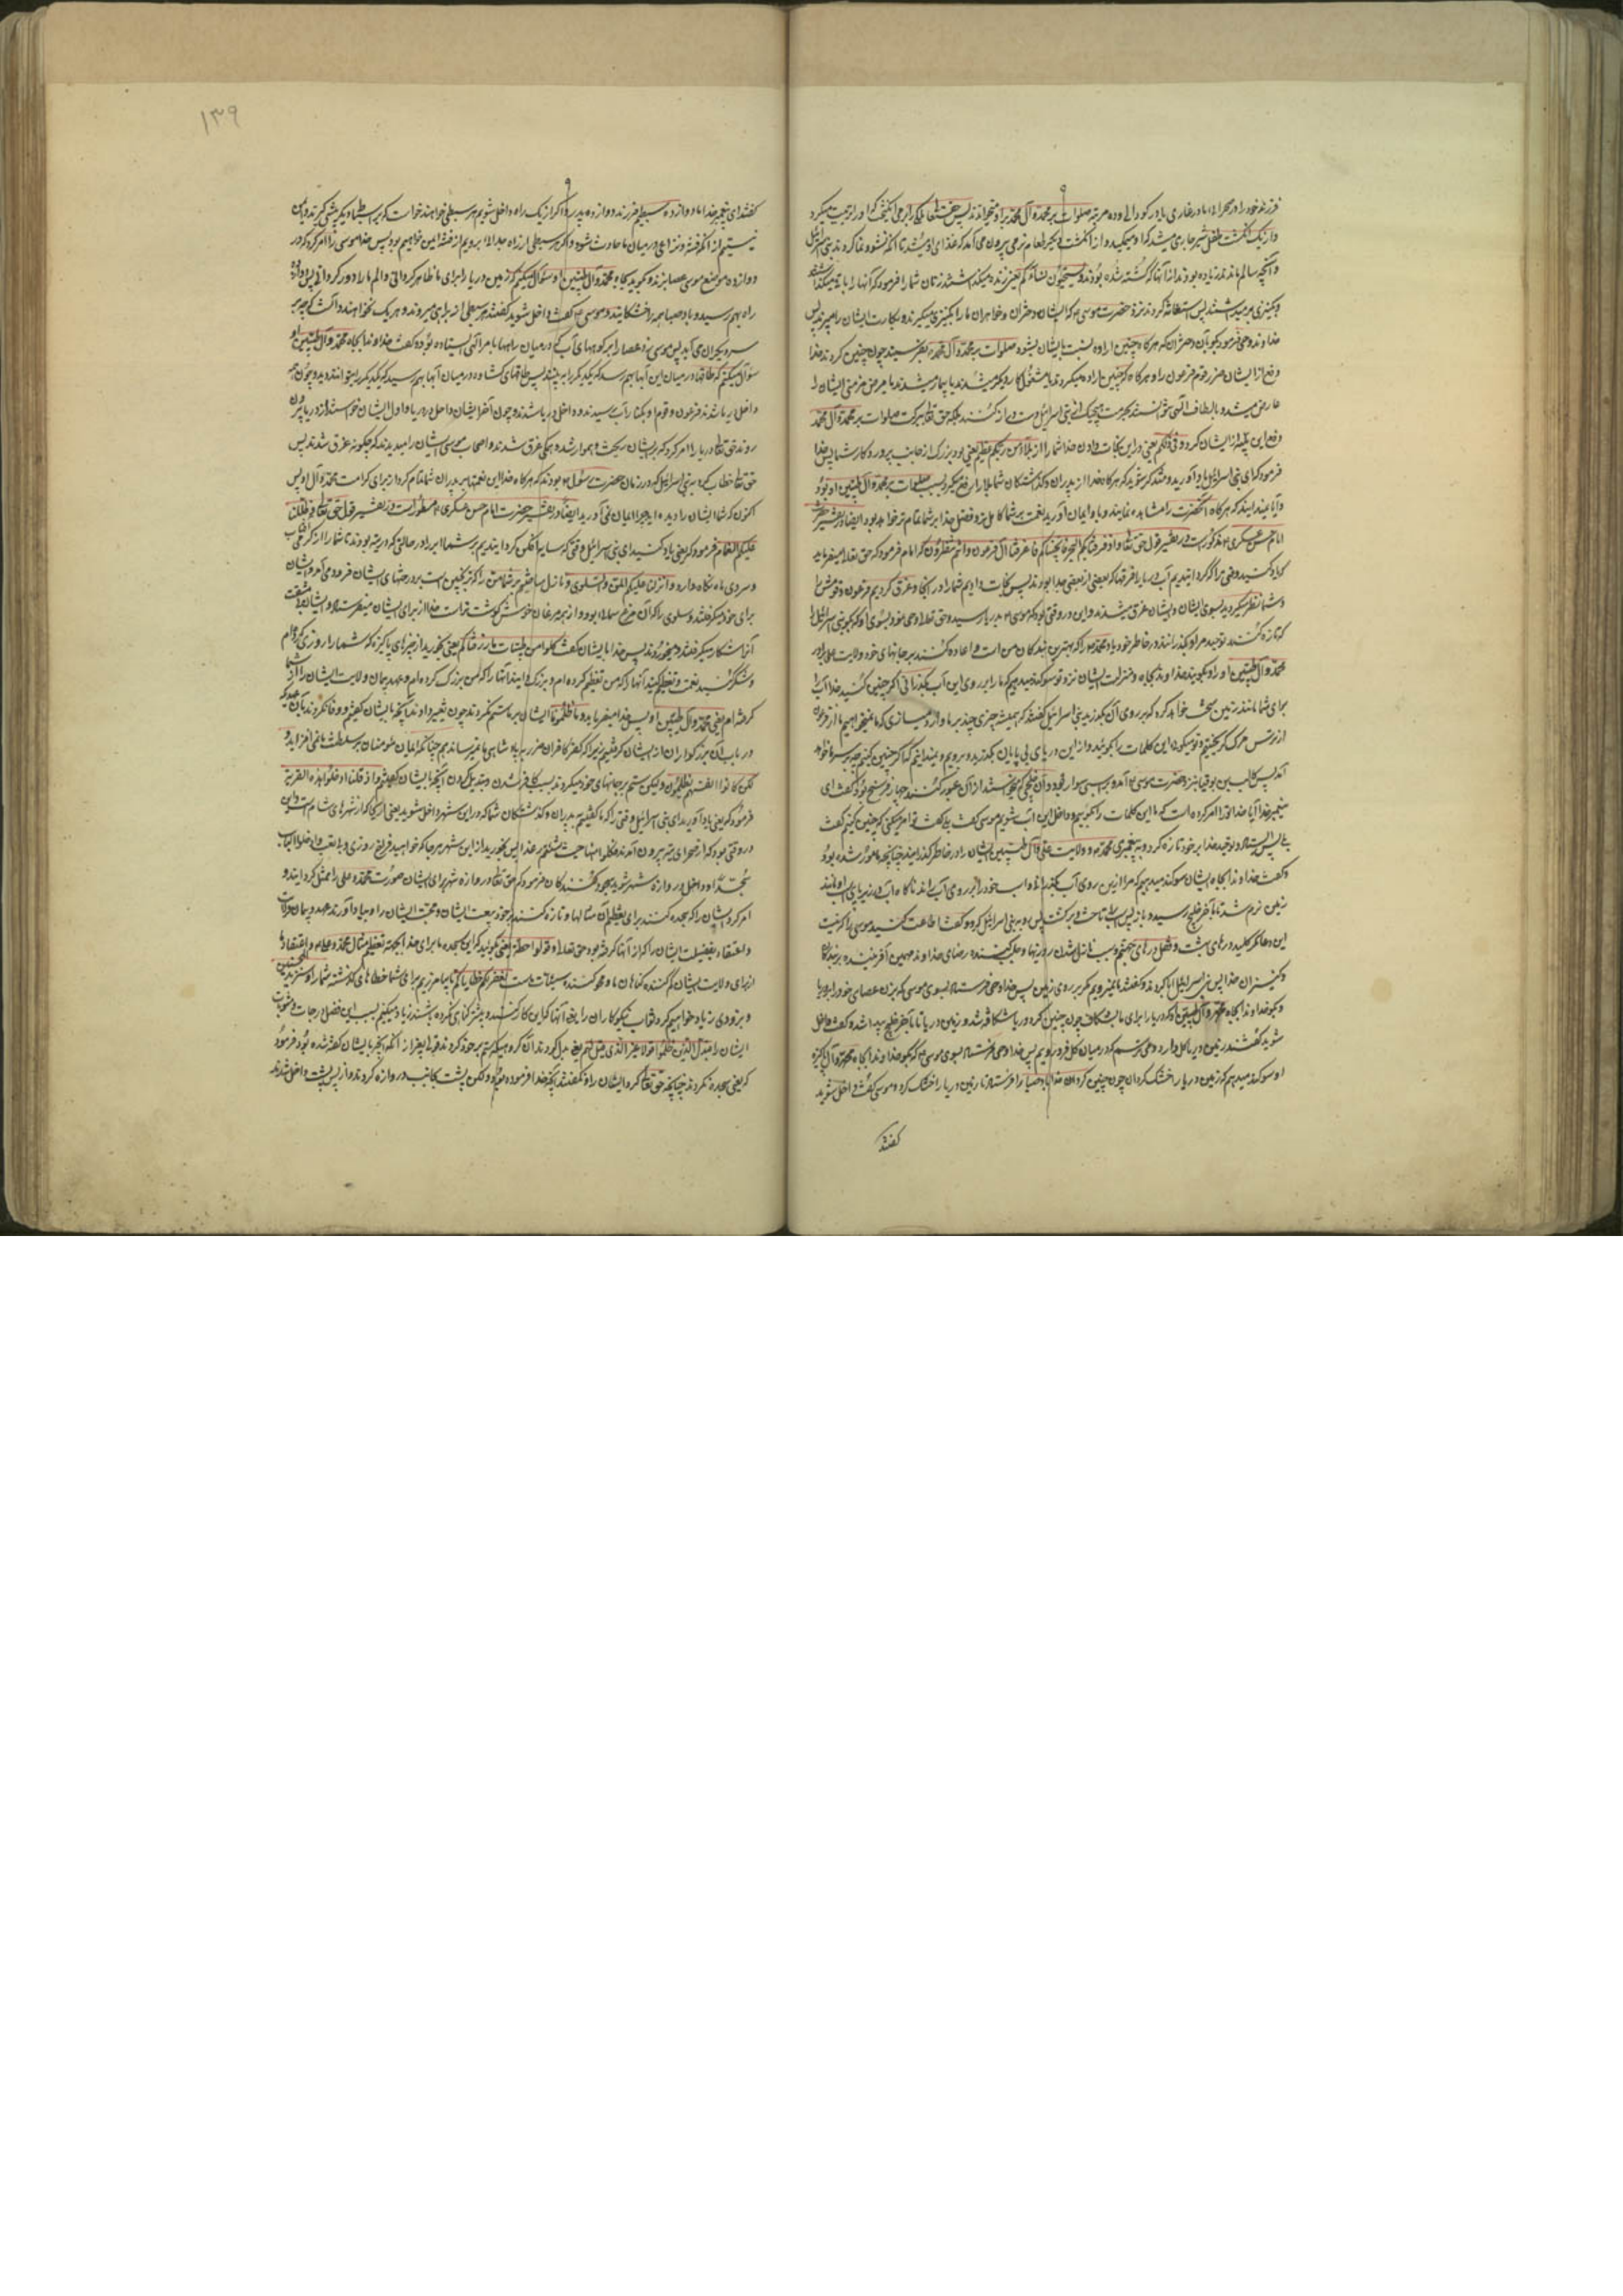 فرزند خود را در صحرا یا در غاری یا در کودالی و ده مرتبه صلوات بر محمد و آل محمد بر او میخواند پس حق تعالی ملکی را بر می انگیخت که او را تربیت میکرد
و از یک انگشت طفل شیر جاری میشد که او میمکید و از انگشت دیگر طعام نرمی بیرون می آمد که غذای او میشد تا آنکه نشو و نما کردند بنی اسرائیل
و آنچه سالم ماندند زیاده بودند از آنها که کشته شده بودند و یستحیون نساءکم یعنی زنده میگذاشتند زنان شما را فرمود که آنها را باقی میگذاشتند
و بکنیزی بر میداشتند پس استغاثه کردند نزد حضرت موسی که ایشان دختران و خواهران ما را بکنیزی میگیرند و بکارت ایشان را میبرند پس
خداوند وحی فرمود بگو بآن دختران که هرگاه چنین اراده نسبت بایشان بشود صلوات بر محمد و آل محمد بفرستند چون چنین کردند خدا
دفع از ایشان ضرر قوم فرعون را و هرگاه که چنین اراده میکردند یا مشغول کار دیگر میشدند یا بیمار میشدند یا مرض مزمنی ایشان را
عارض میشد و بالطاف الهی نتوانستند بحرمت هیچیک از بنی اسرائیل دست دراز کنند بلکه حق تعالی ببرکت صلوات بر محمد و آل محمد
دفع این بلیه از ایشان کرد و فی ذلکم یعنی در این نجات دادن خدا شما را بلاء من ربکم عظیم یعنی بود بزرک از جانب پروردگار شما پس خدا
فرمود که ای بنی اسرائیل یاد آورید و متذکر شوید که هرگاه خدا از پدران و گذشتگان شما بلا را رفع میکرد بسبب صلوات بر محمد و آل طیبین او بود
و آیا نمیدانید که هرگاه آنحضرت را مشاهده نمایند و باو ایمان آورید نعمت بر شما کاملتر و فضل خدا بر شما تمام تر خواهد بود ایضا در تفسیر حضرت
امام حسن عسکری مذکور است در تفسیر قول حق تعالی و اذ فرقنا بکم البحر فانجیناکم و اغرقنا آل فرعون و انتم تنظرون که امام فرمود که حق تعالی میفرماید
که یاد کنید وقتی را که گردانیدیم آب دریا را فرقها که بعضی از بعضی جدا بودند پس نجات دادیم شما را در آنجا و غرق کردیم فرعون و قومش را
و شما نظر میکردید بسوی ایشان و ایشان غرق میشدند و این در وقتی بود که موسی بدریا رسید و حق تعالی وحی نمود بسوی او که بگو بنی اسرائیل را
که تازه کنند توحید مرا و بگذرانند در خاطر خود یاد محمد را که بهترین بندگان من است و اعاده کنند بر جانهای خود ولایت علی برادر
محمد و آل طیبین او را و بگویند خداوندا بجاه و منزلت ایشان نزد تو سوگند میدهیم که ما را بر روی این آب بگذرانی اگر چنین کنید خدا آب را
برای شما مانند زمین سخت خواهد کرد که بر روی آن بگذرید بنی اسرائیل گفتند که همیشه چیزی چند بر ما وارد میسازی که ما نمیخواهیم ما از فرعون
از ترس مرگ گریختیم و تو میگوئی این کلمات را بگوئید و از این دریای بی پایان بگذرید و برویم و نمیدانیم که اگر چنین کنیم چه بر سر ما خواهد
آمد پس کالب بن یوقنا بنزد حضرت موسی آمد و بر اسبی سوار بود و آن خلیجی که میخواستند از آن عبور کنند چهار فرسخ بود گفت ای
پیغمبر خدا آیا خدا ترا امر کرده است که ما این کلمات را بگوئیم و داخل این آب شویم موسی گفت بلی گفت تو امر میکنی که چنین کنیم گفت
بلی پس ایستاد و توحید خدا بر خود تازه کرد و به پیغمبری محمد و ولایت علی و آل طیبین ایشان را در خاطر گذرانید چنانچه مامور شده بود
و گفت خداوندا بجاه ایشان سوگند میدهم که مرا از این روی آب بگذران و اسب خود را بر روی آب راند ناگاه آب در زیر پای اسب او مانند
زمین نرم شد تا بآخر خلیج رسید و باز پس اسب تاخت و برگشت پس رو به بنی اسرائیل کرد و گفت اطاعت کنید موسی را که نیست
این دعا مگر کلید درهای بهشت و قفل درهای جهنم و سبب نازل شدن روزیها و جلب کننده رضای خداوند مهیمن آفریننده بر بندگان
و کنیزان خدا پس بنی اسرائیل ابا کردند و گفتند ما نمیرویم مگر بر روی زمین پس خدا وحی فرستاد بسوی موسی که بزن عصای خود را بر دریا
و بگو خداوندا بجاه محمد و آل طیبین او که دریا را برای ما بشکاف چون چنین کرد دریا شکافته شد و زمین دریا تا بآخر خلیج پیدا شد و گفت داخل
شوید گفتند زمین دریا گل دارد و می ترسیم که در میان گل فرو رویم پس خدا وحی فرستاد بسوی موسی که بگو خداوندا بجاه محمد و آل پاکیزه
او سوگند میدهم که زمین دریا را خشک گردان چون چنین کرد خدا باد صبا را فرستاد تا زمین دریا را خشک کرد و موسی گفت داخل شوید
گفتند
۱۳۹
گفتند ای پیغمبر خدا ما دوازده سبطیم فرزند دوازده پدر و اگر از یک راه داخل شویم هر سبطی خواهند خواست که بر سبط دیگر پیشی گیرند و ایمن
نیستیم از آنکه فتنه و نزاعی در میان ما حادث شود و اگر هر سبطی از راه جدا برویم از فتنه ایمن خواهیم بود پس خدا موسی را امر کرد که در
دوازده موضع موسی عصا بزند و بگوید بجاه محمد و آل طیبین او سؤال میکنم که زمین دریا را برای ما ظاهر گردانی و الم ما را دور گردانی پس دوازده
راه بهم رسید و باد صبا همه را خشکانید و موسی گفت داخل شوید گفتند هر سبطی از ما براهی میروند و هر یک نخواهند دانست که چه بر
سر دیگران می آید پس موسی بزد عصا را بر کوههای آب که در میان راهها بامر الهی ایستاده بود و گفت خداوندا بجاه محمد و آل طیبین او
سؤال میکنم که طاقها در میان این آبها بهم رسد که یکدیگر را به بینند پس طاقهای گشاده در میان آبها بهم رسید که یکدیگر را میتوانستند دید و چون همه
داخل دریا شدند فرعون و قوم او بکنار آب رسیدند و داخل دریا شدند و چون آخر ایشان داخل دریا و اول ایشان خواستند از دریا بیرون
روند حق تعالی دریا را امر کرد که بر ایشان ریخت و هموار شد و همگی غرق شدند و اصحاب موسی ایشان را میدیدند که چگونه غرق شدند پس
حق تعالی خطاب کرد به بنی اسرائیل که در زمان حضرت رسول بودند که هرگاه خدا این نعمتها بر پدران شما تمام کرد از برای کرامت محمد و آل او پس
اکنون که شما ایشان را دیده اید چرا ایمان نمی آورید ایضا در تفسیر حضرت امام حسن عسکری مسطور است در تفسیر قول حق تعالی و ظللنا
علیکم الغمام فرمود که یعنی یاد کنید ای بنی اسرائیل وقتی که سایه افکن گردانیدیم بر شما ابر را در حالتی که در تیه بودند تا شما را از گرمی آفتاب
و سردی ماه نگاه دارد و انزلنا علیکم المن و السلوی و نازل ساختیم بر شما من را که ترنجبین است بر درختهای ایشان فرود می آمد و ایشان
برای خود میگرفتند و سلوی را که آن مرغ سمانا بود و از همه مرغان خوش گوشت تر است خدا از برای ایشان میفرستاد و ایشان بی مشقت
آنرا شکار میگرفتند و میخوردند پس خدا بایشان گفت کلوا من طیبات ما رزقناکم یعنی بخورید از چیزهای پاکیزه که شما را روزی کرده ام
و شکر کنید نعمت و تعظیم کنید آنها را که من تعظیم کرده ام و بزرگ دانید آنها را که من بزرگ کرده ام و عهد و پیمان ولایت ایشان را از شما
گرفته ام یعنی محمد و آل طیبین او پس خدا میفرماید و ما ظلمونا ایشان بر ما ستم نکردند چون تغییر دادند آنچه بایشان گفتیم و وفا نکردند بآن عهد که
در باب آن بزرگواران از ایشان گرفتیم زیرا که کفر کافران ضرر به پادشاهی ما نمیرساند هم چنانکه ایمان مؤمنان بر سلطنت ما نمی افزاید و
لکن کانوا انفسهم یظلمون و لیکن ستم بر جانهای خود میکردند بسبب کافر شدن و تبدیل کردن آنچه بایشان گفتیم و اذ قلنا ادخلوا هذه القریة
فرمود که یعنی یاد آورید ای بنی اسرائیل وقتی را که ما گفتیم به پدران و گذشتگان شما که در این شهر داخل شوید یعنی اریحا که از شهرهای شام است و این
در وقتی بود که از صحرای تیه بیرون آمدند فکلوا منها حیث شئتم رغدا پس بخورید از این شهر هر جا که خواهید فراخ روزی و بی تعب و ادخلوا الباب
سجدا و داخل دروازه شهر شوید سجود کنندگان فرمود که حق تعالی در دروازه شهر برای ایشان صورت محمد و علی را ممثل گردانید و
امر کرد ایشان را که سجده کنند برای تعظیم آن مثالها و تازه کنند بر خود بیعت ایشان و محبت ایشان را و بیاد آورند عهد و پیمان ولایت
و اعتقاد بفضیلت ایشان را که از آنها گرفته بود حق تعالی و قولوا حطة یعنی بگوئید که این سجده ما برای خدا بجهة تعظیم مثال محمد و علی و اعتقاد ما
از برای ولایت ایشان کم کننده گناهان ما و محو کننده سیئات ماست نغفر لکم خطایاکم تا بیامرزیم برای شما خطاهای گذشته شما را و سنزید المحسنین
و بزودی زیاد خواهیم کرد ثواب نیکوکاران را یعنی آنها که این کار کنند و پیشتر گناهی نکرده باشند زیاد میکنیم بسبب این فضل درجات و مثوبات
ایشان را فبدل الذین ظلموا قولا غیر الذی قیل لهم یعنی بدل کردند آن گروهی که ستم بر خود کردند قولی غیر از آنکه آنچه بایشان گفته شده بود فرمود
که یعنی سجده نکردند چنانچه حق تعالی امر کرد ایشان را و نگفتند آنچه خدا فرموده بود و لکن پشت بجانب دروازه کردند و از پس پشت داخل شدند